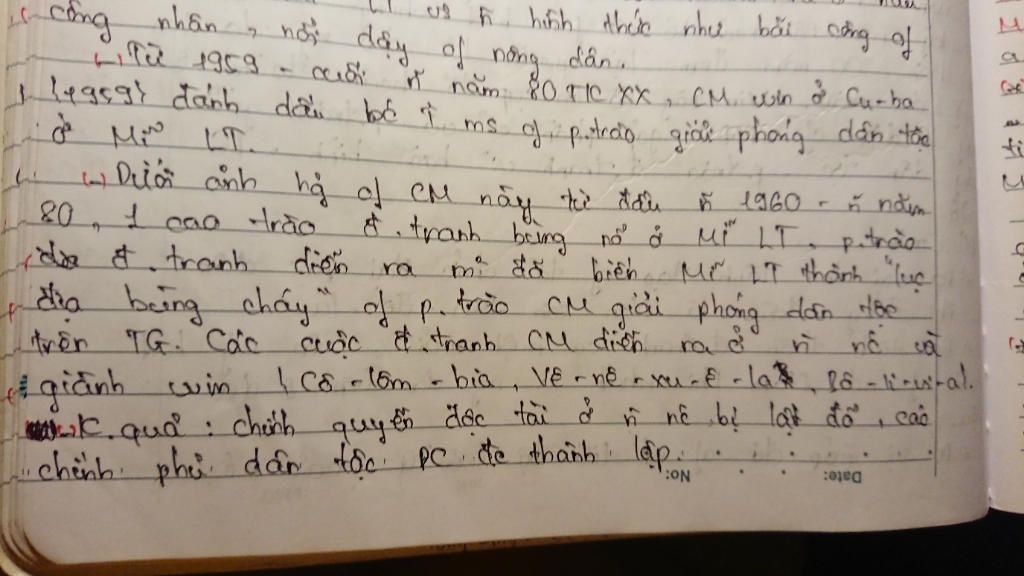 LT vs ñ hình thức như bãi công of
công nhân, nổi dậy of nông dân.
(-) Từ 1959 - cuối ñ năm 80 TK XX, CM win ở Cu-ba
(1959) đánh dấu bc ↑ ms of p.trào giải phóng dân tộc
ở Mĩ LT.
(-) Dưới ảnh hg of CM này từ đầu ñ 1960 - ñ năm
80, 1 cao trào đ.tranh bùng nổ ở Mĩ LT. p.trào
đ.tranh diễn ra mẽ đã biến Mĩ LT thành "lục
địa bùng cháy" of p.trào CM giải phóng dân tộc
trên TG. Các cuộc đ.tranh CM diễn ra ở ñ nc và
giành win (Cô-lôm-bia, Vê-nê-xu-ê-la, Bô-li-vi-a).
K.quả: chính quyền độc tài ở ñ nc bị lật đổ, các
chính phủ dân tộc DC đc thành lập.
No:
Date: